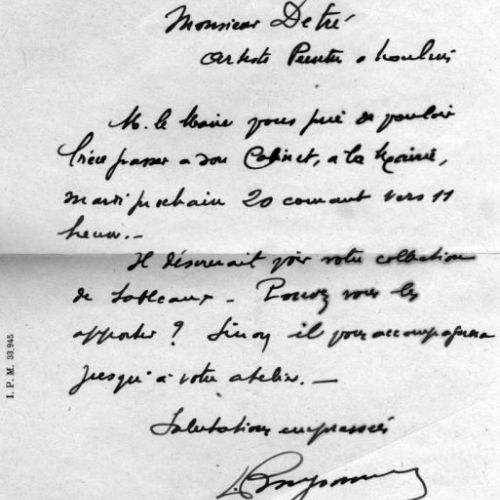 Monsieur Detré
Artiste Peintre a Moulins
M. le Maire vous prie de vouloir
bien passer a son Cabinet, a la Mairie,
mardi prochain 20 courant vers 11
heures.-
Il désirerait voir votre collection
de tableaux - Pouvez vous les
apporter ? Sinon il vous accompagnera
jusqu'à votre atelier. -
Salutations empressées
I. P. M. 33.945